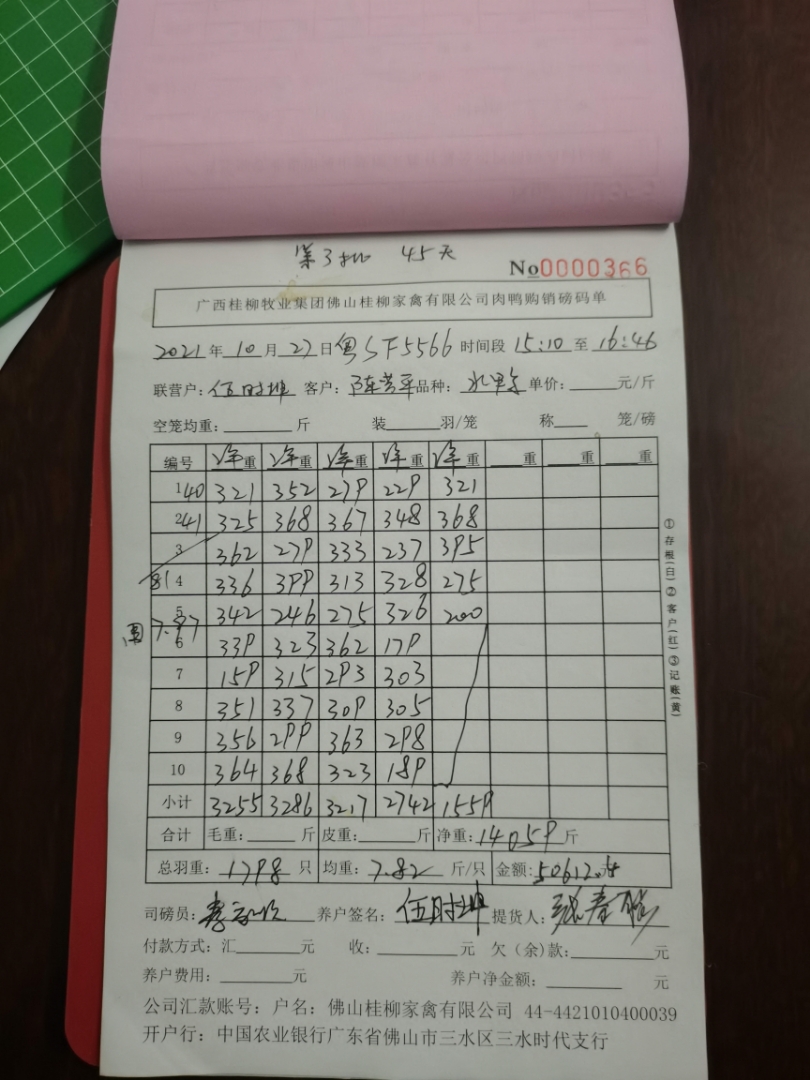 第3批 45天
No0000366
广西桂柳牧业集团佛山桂柳家禽有限公司肉鸭购销磅码单
2021年10月27日粤SF5566 时间段15:10至16:46
联营户:伍时坤 客户:陈芳平 品种: 单价:____元/斤
空笼均重:____斤 装____羽/笼 称____笼/磅
编号 净重 净重 净重 净重 净重 重 重 重
1 40 321 352 279 229 321
2 41 325 368 367 348 368
3 362 279 333 237 395
81 4 336 399 313 328 275
5 342 246 275 326 200
7.97
6 339 323 362 179
7 159 315 293 303
8 351 337 309 305
9 356 299 363 298
10 364 368 323 189
小计 3255 3286 3217 2742 1559
合计 毛重:____斤 皮重:____斤 净重:14059斤
总羽重:1798只 均重:7.82斤/只 金额:50612元
司磅员: 养户签名:伍时坤 提货人:
付款方式:汇____元 收:____元 欠(余)款:____元
养户费用:____元 养户净金额:____元
公司汇款账号:户名:佛山桂柳家禽有限公司 44-4421010400039
开户行:中国农业银行广东省佛山市三水区三水时代支行
①存根(白)②客户(红)③记账(黄)